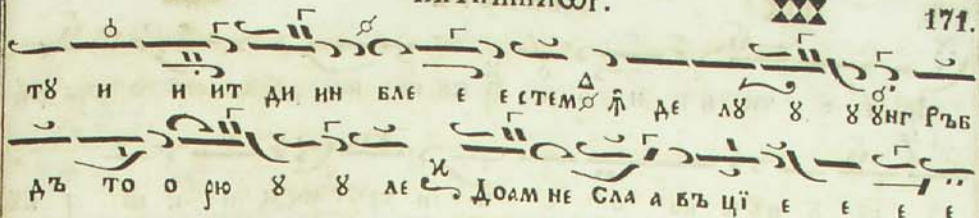 171.
тꙋ и и ит ди ин бле е е стем Δ ѿ де лꙋ ꙋ ꙋ ꙋнг Ръб
дъ то о рю ꙋ ꙋ ле Доам не Сла а въ цї е е е е